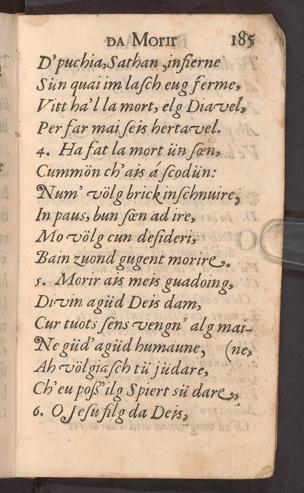 DA MORIR 185
D'puchia, Sathan, infierne
Sün quai im lasch eug ferme,
Vitt ha'l la mort, elg Diavel,
Per far mai seis hertavel.
4. Ha fat la mort ün sœn,
Cummön ch'ais á scodün:
Num' völg brick inschnuire,
In paus, bun sœn ad ire,
Mo völg cun desideri,
Bain zuond gugent morire.
5. Morir ais meis guadoing,
Divin agüd Deis dam,
Cur tuots sens vengn' alg mai-
Ne güd' agüd humaune, (ne,
Ah völgiasch tü jüdare,
Ch'eu poß' ilg Spiert sü dare,
6. O Jesu filg da Deis,